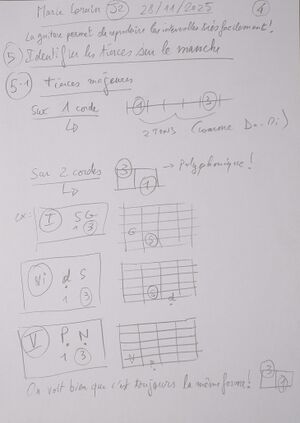 Marie Cousin S2 28/11/2025 4
La guitare permet de reproduire les intervalles très facilement !
5 Identifier les tierces sur le manche
5-1 tierces majeures
Sur 1 corde
1 3
2 TONS (comme Do-Mi)
Sur 2 cordes
3 1 → Polyphonique !
ex: I S G
1 3
G S
VI d S
1 3
S d
V P N
1 3
N P
On voit bien que c'est toujours la même forme !
3 1